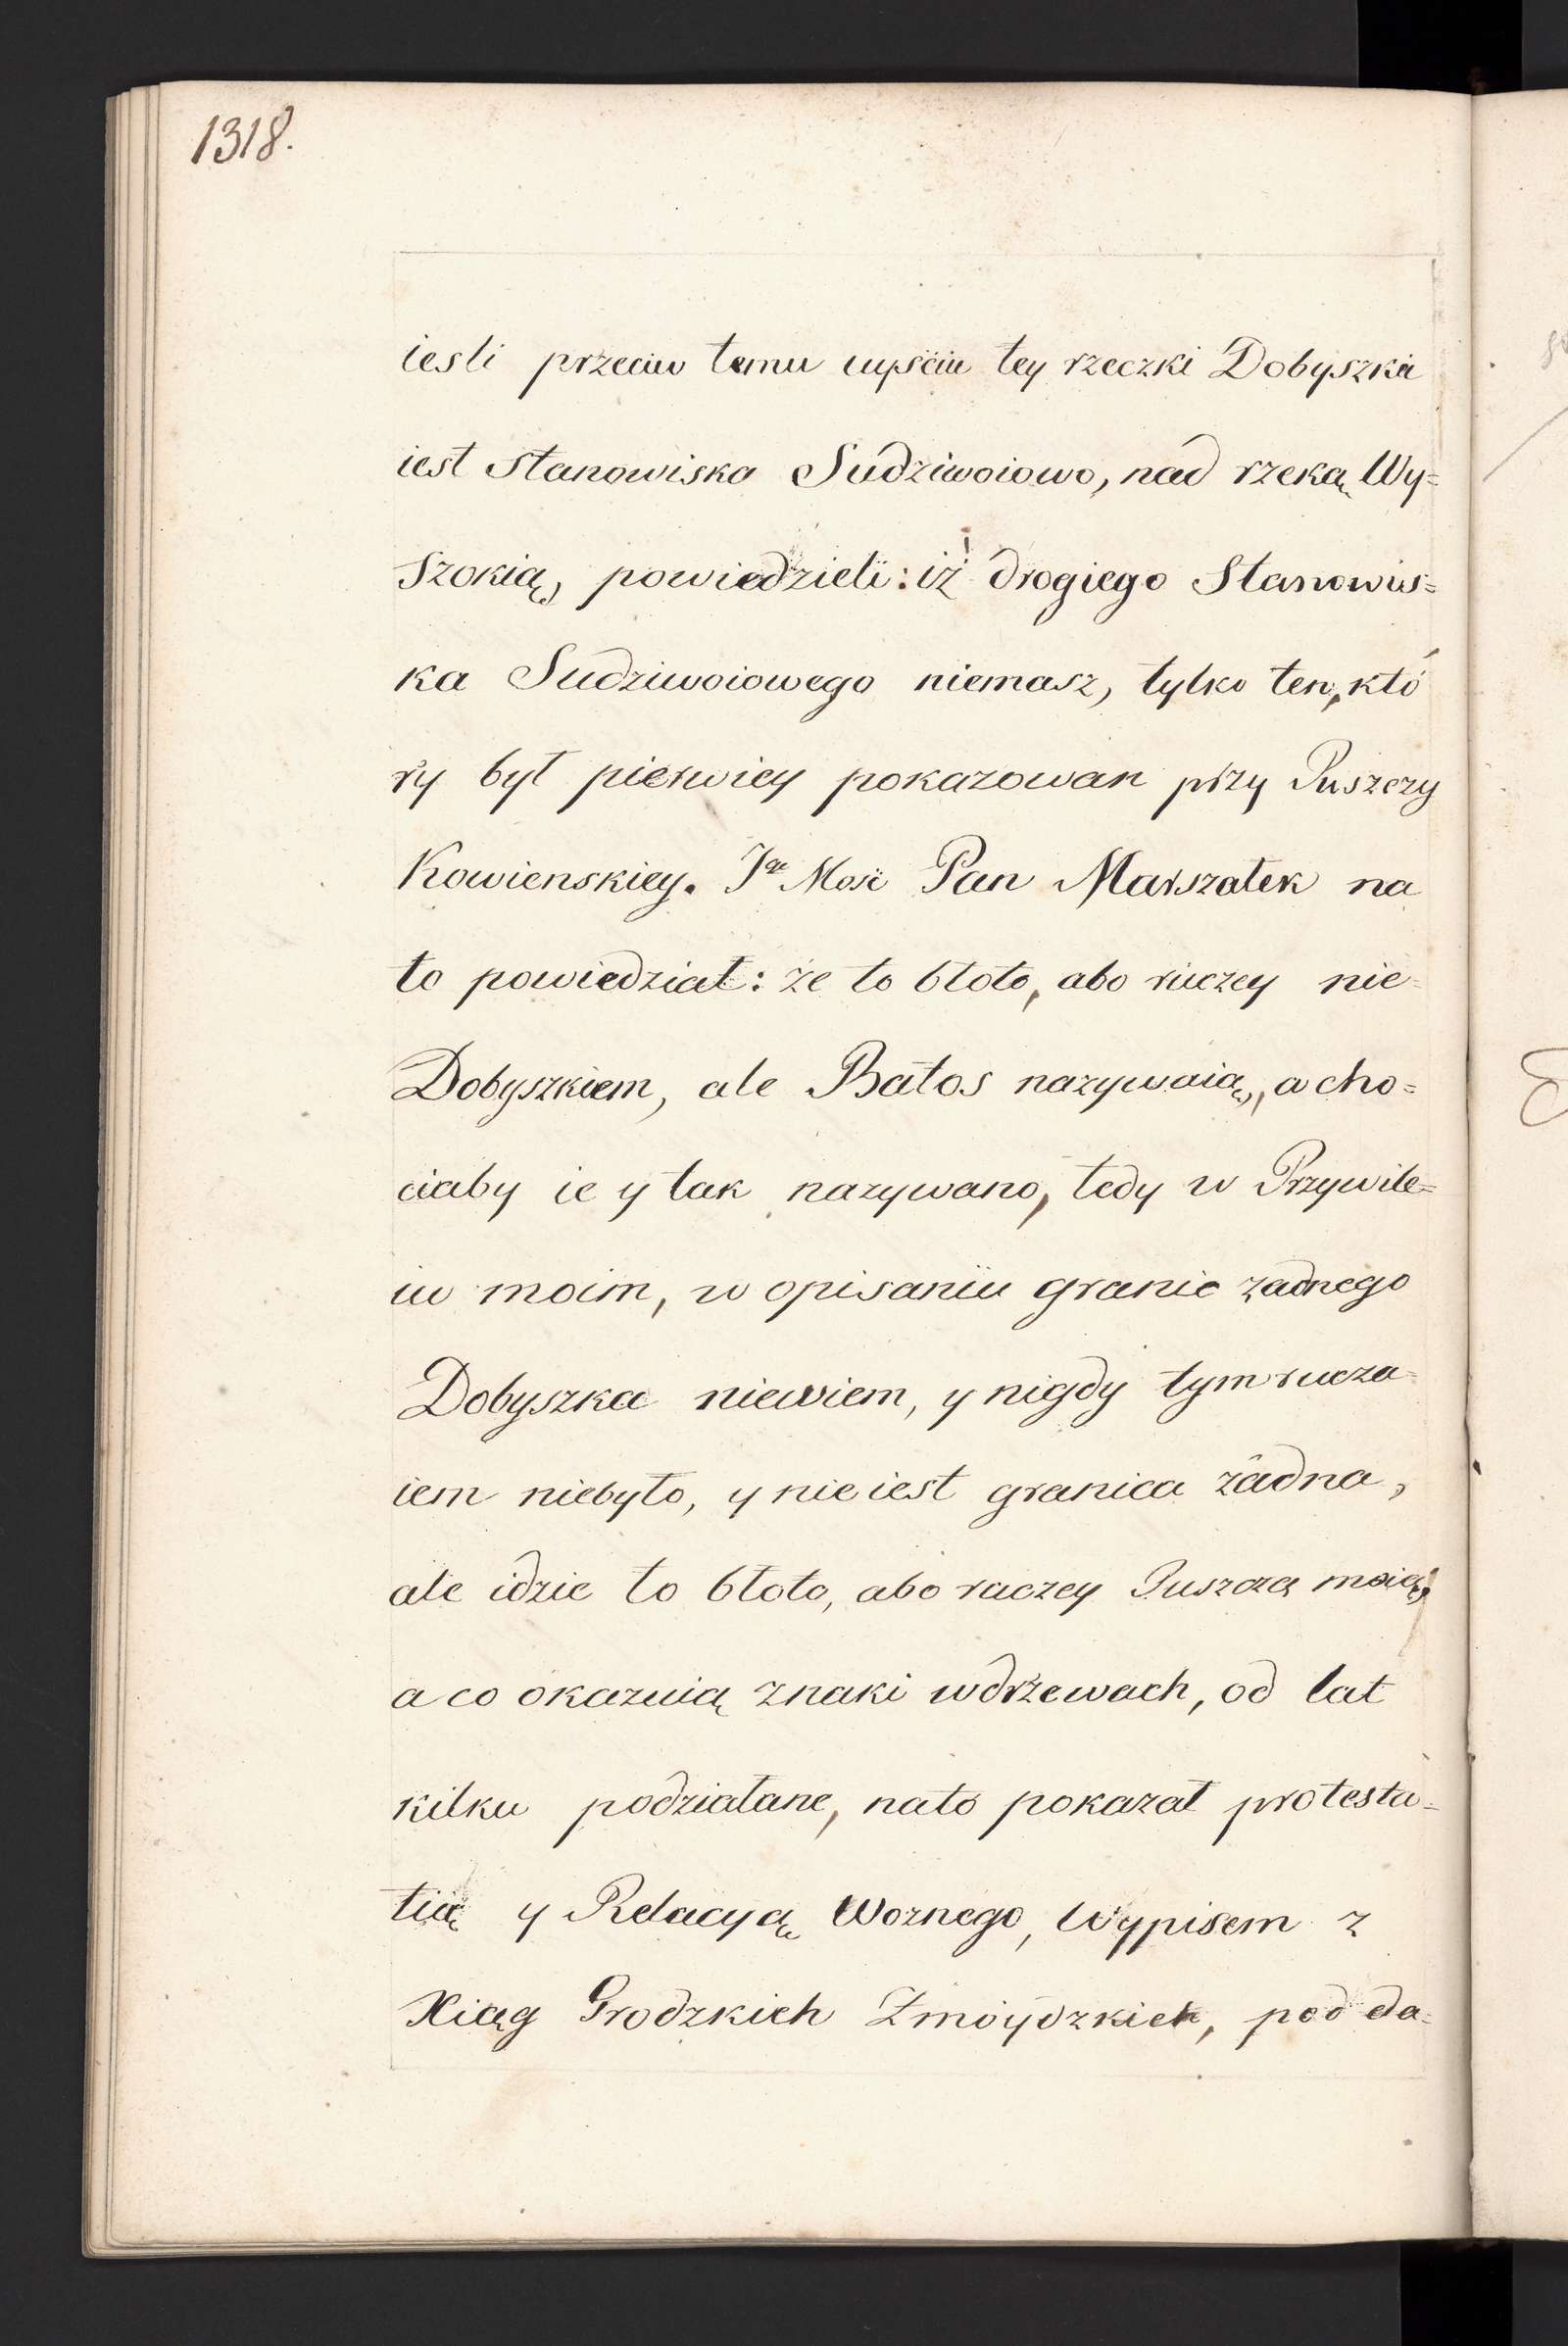 1318.
iesli przeciw temu uyściu tey rzeczki Dobyszka
iest Stanowisko Sudziwoiowo, nad rzeką Wy=
szokią, powiedzieli: iż drogiego Stanowis=
ka Sudziwoiowego niemasz, tylko ten, któ
ry był pierwiey pokazowan przy Puszczy
Kowienskiey. Je Mość Pan Marszałek na
to powiedział: że to błoto, abo ruczey nie=
Dobyszkiem, ale Bałos nazywaią, a cho=
ciaby ie y tak nazywano, tedy w Przywile=
iu moim, w opisaniu granic żadnego
Dobyszka niewiem, y nigdy tym rucza=
iem niebyło, y nie iest granica żadna,
ale idzie to błoto, abo raczey Puszczą moią,
a co okazuią znaki w drzewach, od lat
kilku podziałane, nato pokazał protesta=
tią y Relacyą Woznego, Wypisem z
Xiąg Grodzkich Zmoydzkich, pod da=